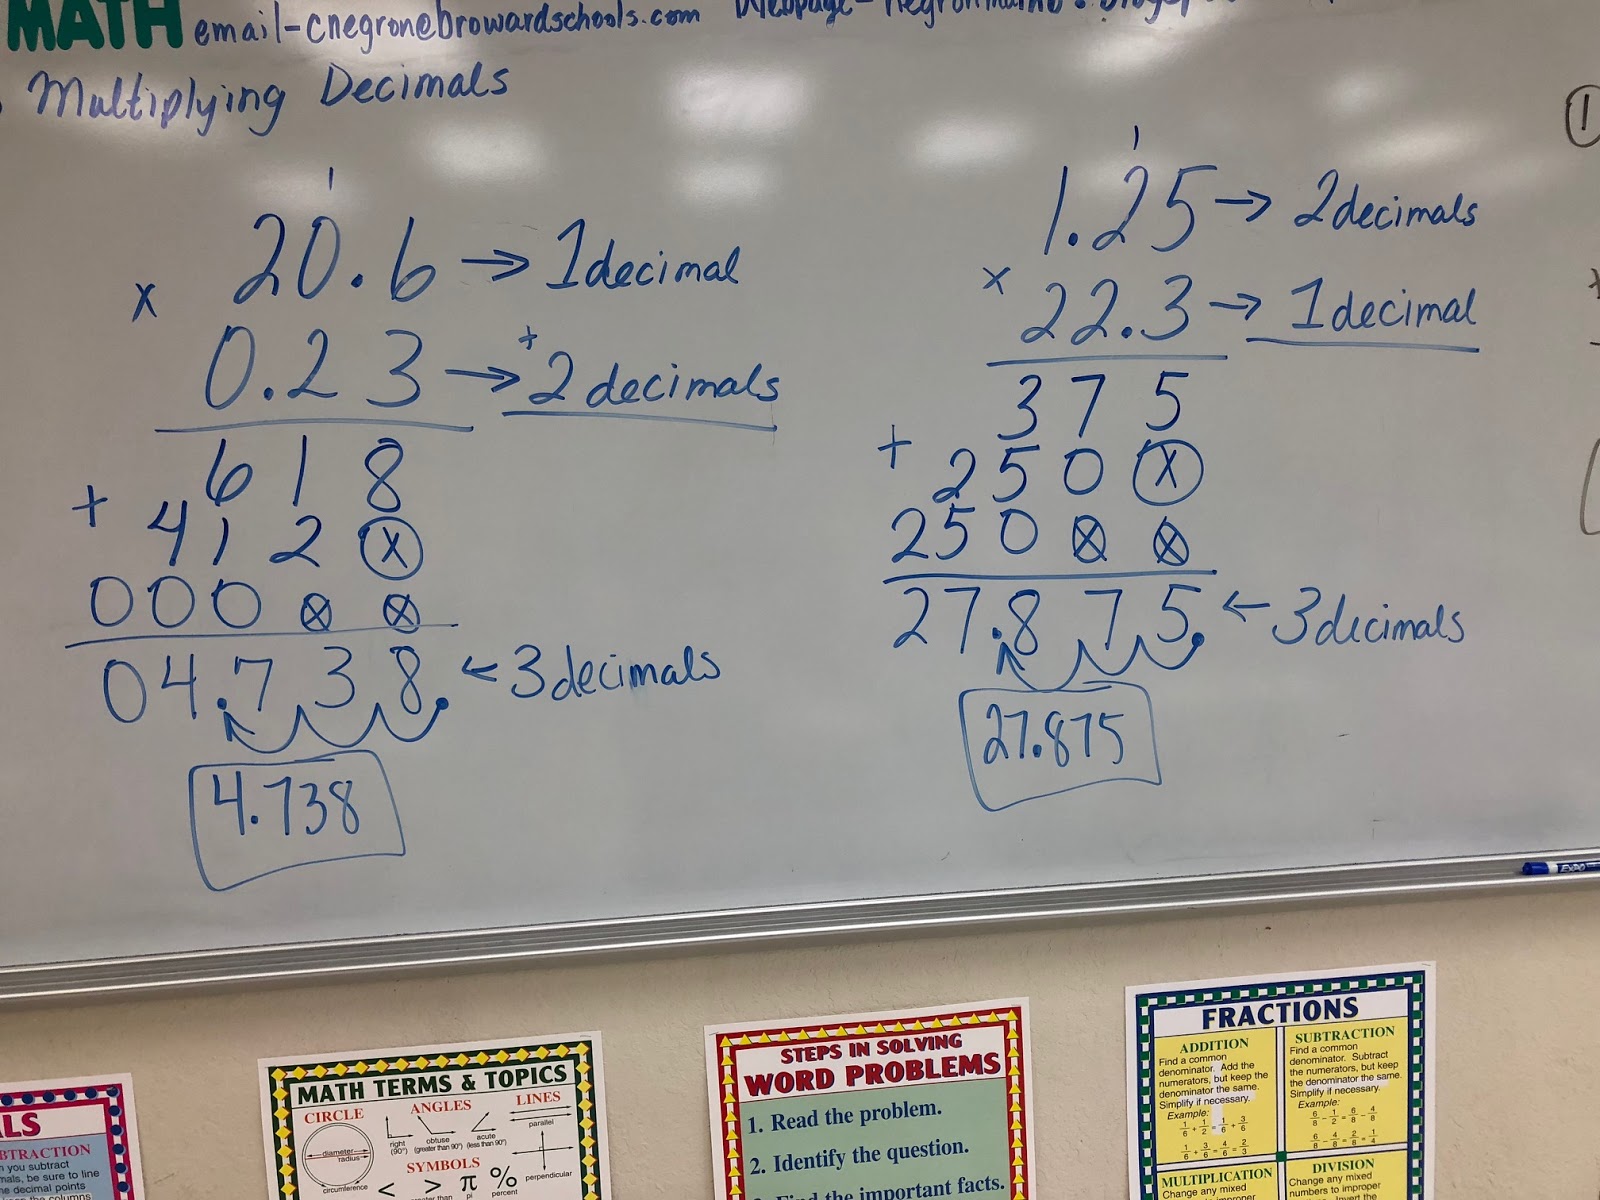 MATH email-cnegron@browardschools.com Webpage-
Multiplying Decimals
1
20.6 → 1 decimal
x 0.23 → + 2 decimals
618
+ 412ⓧ
000⊗⊗
04.738. ← 3 decimals
4.738
1
1.25 → 2 decimals
x 22.3 → 1 decimal
375
+ 250ⓧ
250⊗⊗
27.875. ← 3 decimals
27.875
1
EXPO
ALS
BTRACTION
you subtract
mals, be sure to line
decimal points
columns
MATH TERMS & TOPICS
CIRCLE
diameter
radius
circumference
ANGLES
right (90°)
obtuse (greater than 90°)
acute (less than 90°)
LINES
parallel
perpendicular
SYMBOLS
< > π %
pi
percent
STEPS IN SOLVING
WORD PROBLEMS
1. Read the problem.
2. Identify the question.
Find the important facts.
FRACTIONS
ADDITION
Find a common
denominator. Add the
numerators, but keep the
denominator the same.
Simplify if necessary.
Example:
1/6 + 1/2 = 1/6 + 3/6
1/6 + 3/6 = 4/6 = 2/3
SUBTRACTION
Find a common
denominator. Subtract
the numerators, but keep
the denominator the same.
Simplify if necessary.
Example:
6/8 - 1/2 = 6/8 - 4/8
6/8 - 4/8 = 2/8 = 1/4
MULTIPLICATION
Change any mixed
DIVISION
Change any mixed
numbers to improper